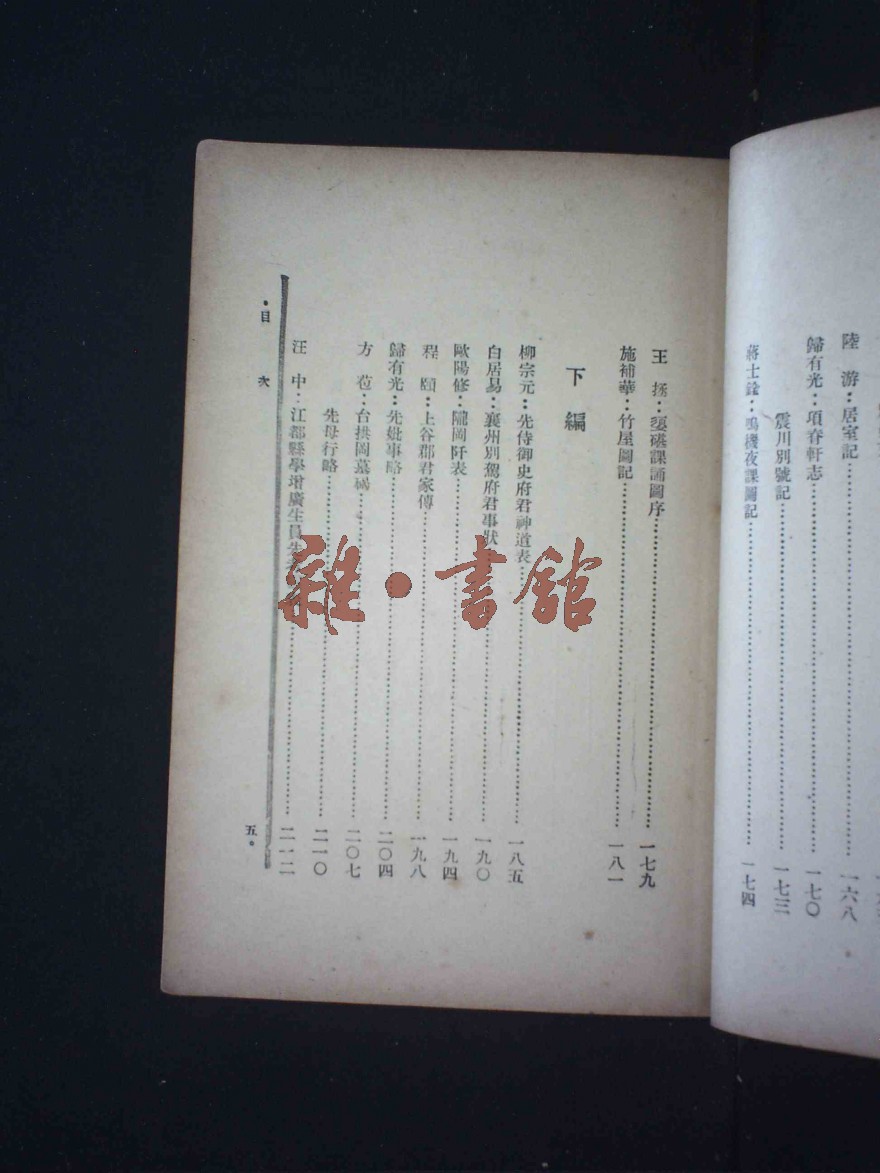 陸 游：居室記……一六八
歸有光：項脊軒志……一七〇
震川別號記……一七三
蔣士銓：鳴機夜課圖記……一七四
王 拯：媭碪課誦圖序……一七九
施補華：竹屋圖記……一八一
下編
柳宗元：先侍御史府君神道表……一八五
白居易：襄州別駕府君事狀……一九〇
歐陽修：隴岡阡表……一九四
程 頤：上谷郡君家傳……一九八
歸有光：先妣事略……二〇四
方 苞：台拱岡墓碣……二〇七
先母行略……二一〇
汪 中：江都縣學增廣生員先……二一二
·目 次
五·
雜·書館